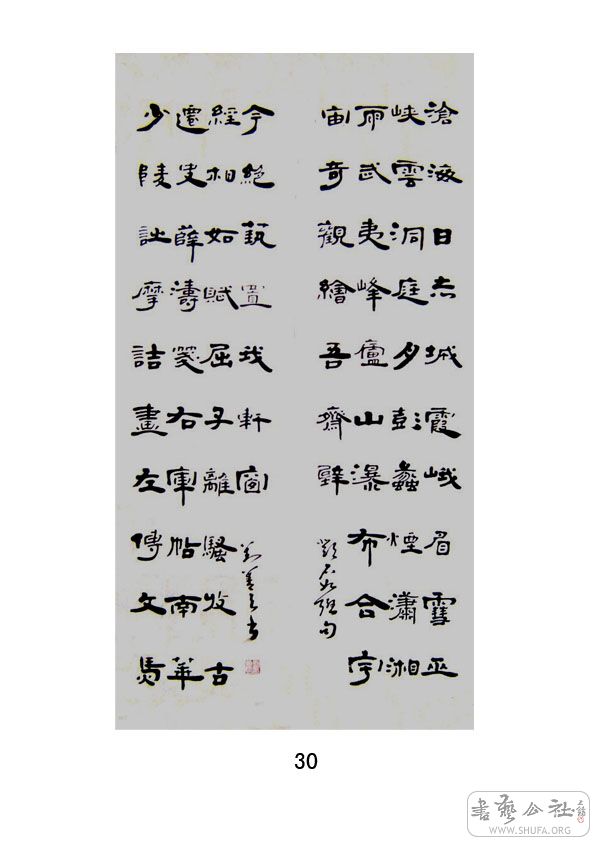 滄海日赤城霞峨眉雪巫
峽雲洞庭月彭蠡煙瀟湘
雨武夷峰廬山瀑布合宇
宙奇觀繪吾齋壁
鄧石如聯句
少陵詩摩詰畫左傳文馬
遷史薛濤箋右軍帖南華
經相如賦屈子離騷收古
今絕藝置我軒窗
30
書藝公社
WWW.SHUFA.ORG